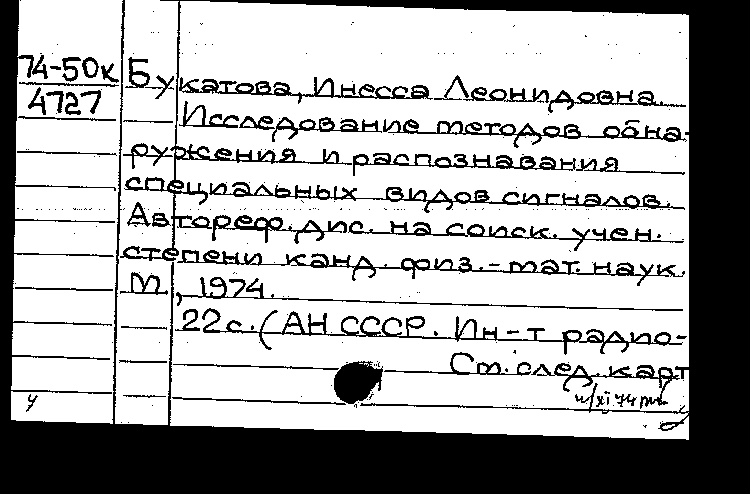 74-50к
4727
Букатова, Инесса Леонидовна.
Исследование методов обна-
ружения и распознавания
специальных видов сигналов.
Автореф. дис. на соиск. учен.
степени канд. физ.-мат. наук.
М., 1974.
22 с. (АН СССР. Ин-т радио-
См. след. карт
у